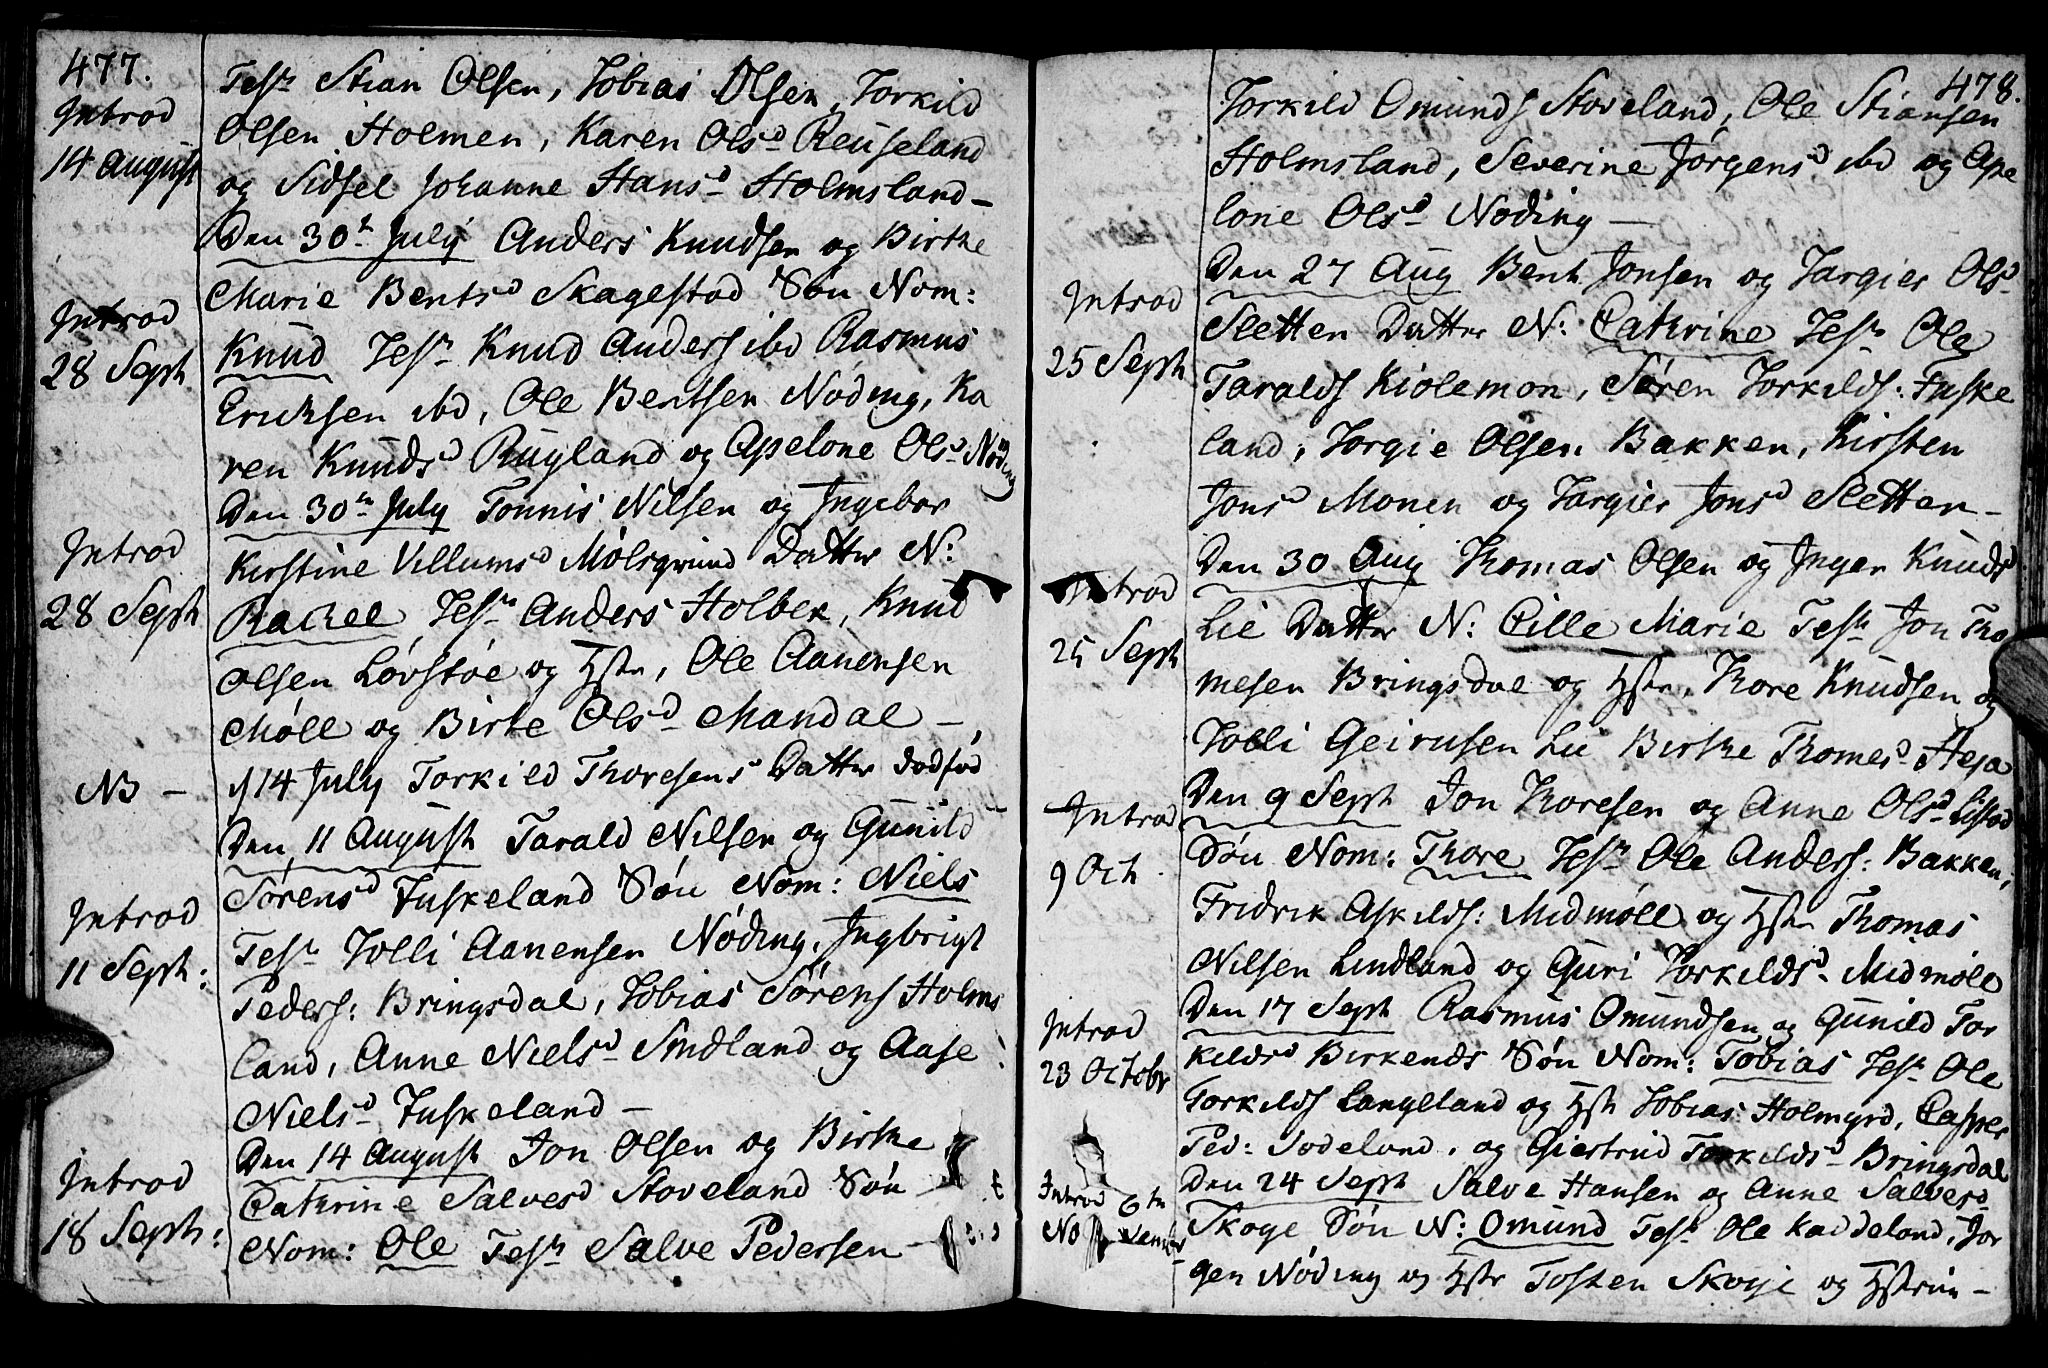 477.
Introd
14 August
Test Stian Olsen, Tobias Olsen, Torkild
Olsen Holmen, Karen Olsd Reuseland
og Sidsel Johanne Hansd Holmsland -
Introd
28 Sept
Den 30te July Anders Knudsen og Birthe
Marie Bentsd Skagestad Søn Nom:
Knud Test Knud Anders ibd Rasmus
Ericksen ibd, Ole Bentsen Nøding, Ka
ren Knudsd Rugland og Apelone Olsd Nøding
Introd
28 Sept
Den 30te July Tønnis Nilsen og Ingebor
Kirstine Villumsd Mølsgrund Datter N:
Rachel Test Anders Holbek, Knud
Olsen Løvstøe og hstr, Ole Aanensen
Møll og Birte Olsd Mandal -
NB -
14 July Torkild Thoresens Datter dødfød
Introd
11 Sept:
Den 11 August Tarald Nilsen og Gunild
Sørensd Fuskeland Søn Nom: Niels
Test Tolli Aanensen Nøding, Ingbrigt
Peders: Bringsdal, Tobias Sørens Holms
land, Anne Nielsd Smedland og Aase
Nielsd Fuskeland -
Introd
18 Sept:
Den 14 August Jon Olsen og Birthe
Cathrine Salvesd Stoveland Søn
Nom: Ole Test Salve Pedersen -
478.
Torkild Omunds Stoveland, Ole Stiansen
Holmsland, Severine Jørgensd ibd og Ape
lone Olsd Nøding -
Introd
25 Sept
Den 27 Aug Bent Jonsen og Targier Olsd
Sletten Datter N: Cathrine Test Ole
Taralds Kiølemon, Søren Torkilds: Fuske
land, Torgie Olsen Bakken, Kirsten
Jonsd Monen og Targier Jonsd Sletten -
Introd
25 Sept
Den 30 Aug Thomas Olsen og Inger Knudsd
Lie Datter N: Cille Marie Test Jon Tho
mesen Bringsdal og hstr, Thore Knudsen og
Tolli Geirusen Lie Birthe Thomesd
Introd
9 Oct
Den 9 Sept Jon Thoresen og Anne Olsd Listad
Søn Nom: Thore Test Ole Anders: Bakken,
Fridrik Askilds: Midmøll og hstr Thomas
Nilsen Lindland og Guri Torkildsd Midmøll
Introd
23 Octobr
Den 17 Sept Rasmus Omundsen og Gunild Tor
kildsd Birkenes Søn Nom: Tobias Test Ole
Torkilds Langeland og hstr Tobias Holmgrd, Casper
Ped: Jodeland, og Giertrud Torkildsd Bringsdal
Introd 6te
November
Den 24 Sept Salve Hansen og Anne Salvesd
Skoye Søn N: Omund Test Ole kaddeland, Jør
gen Nøding og hstr Tosten Skoye og hstrun -